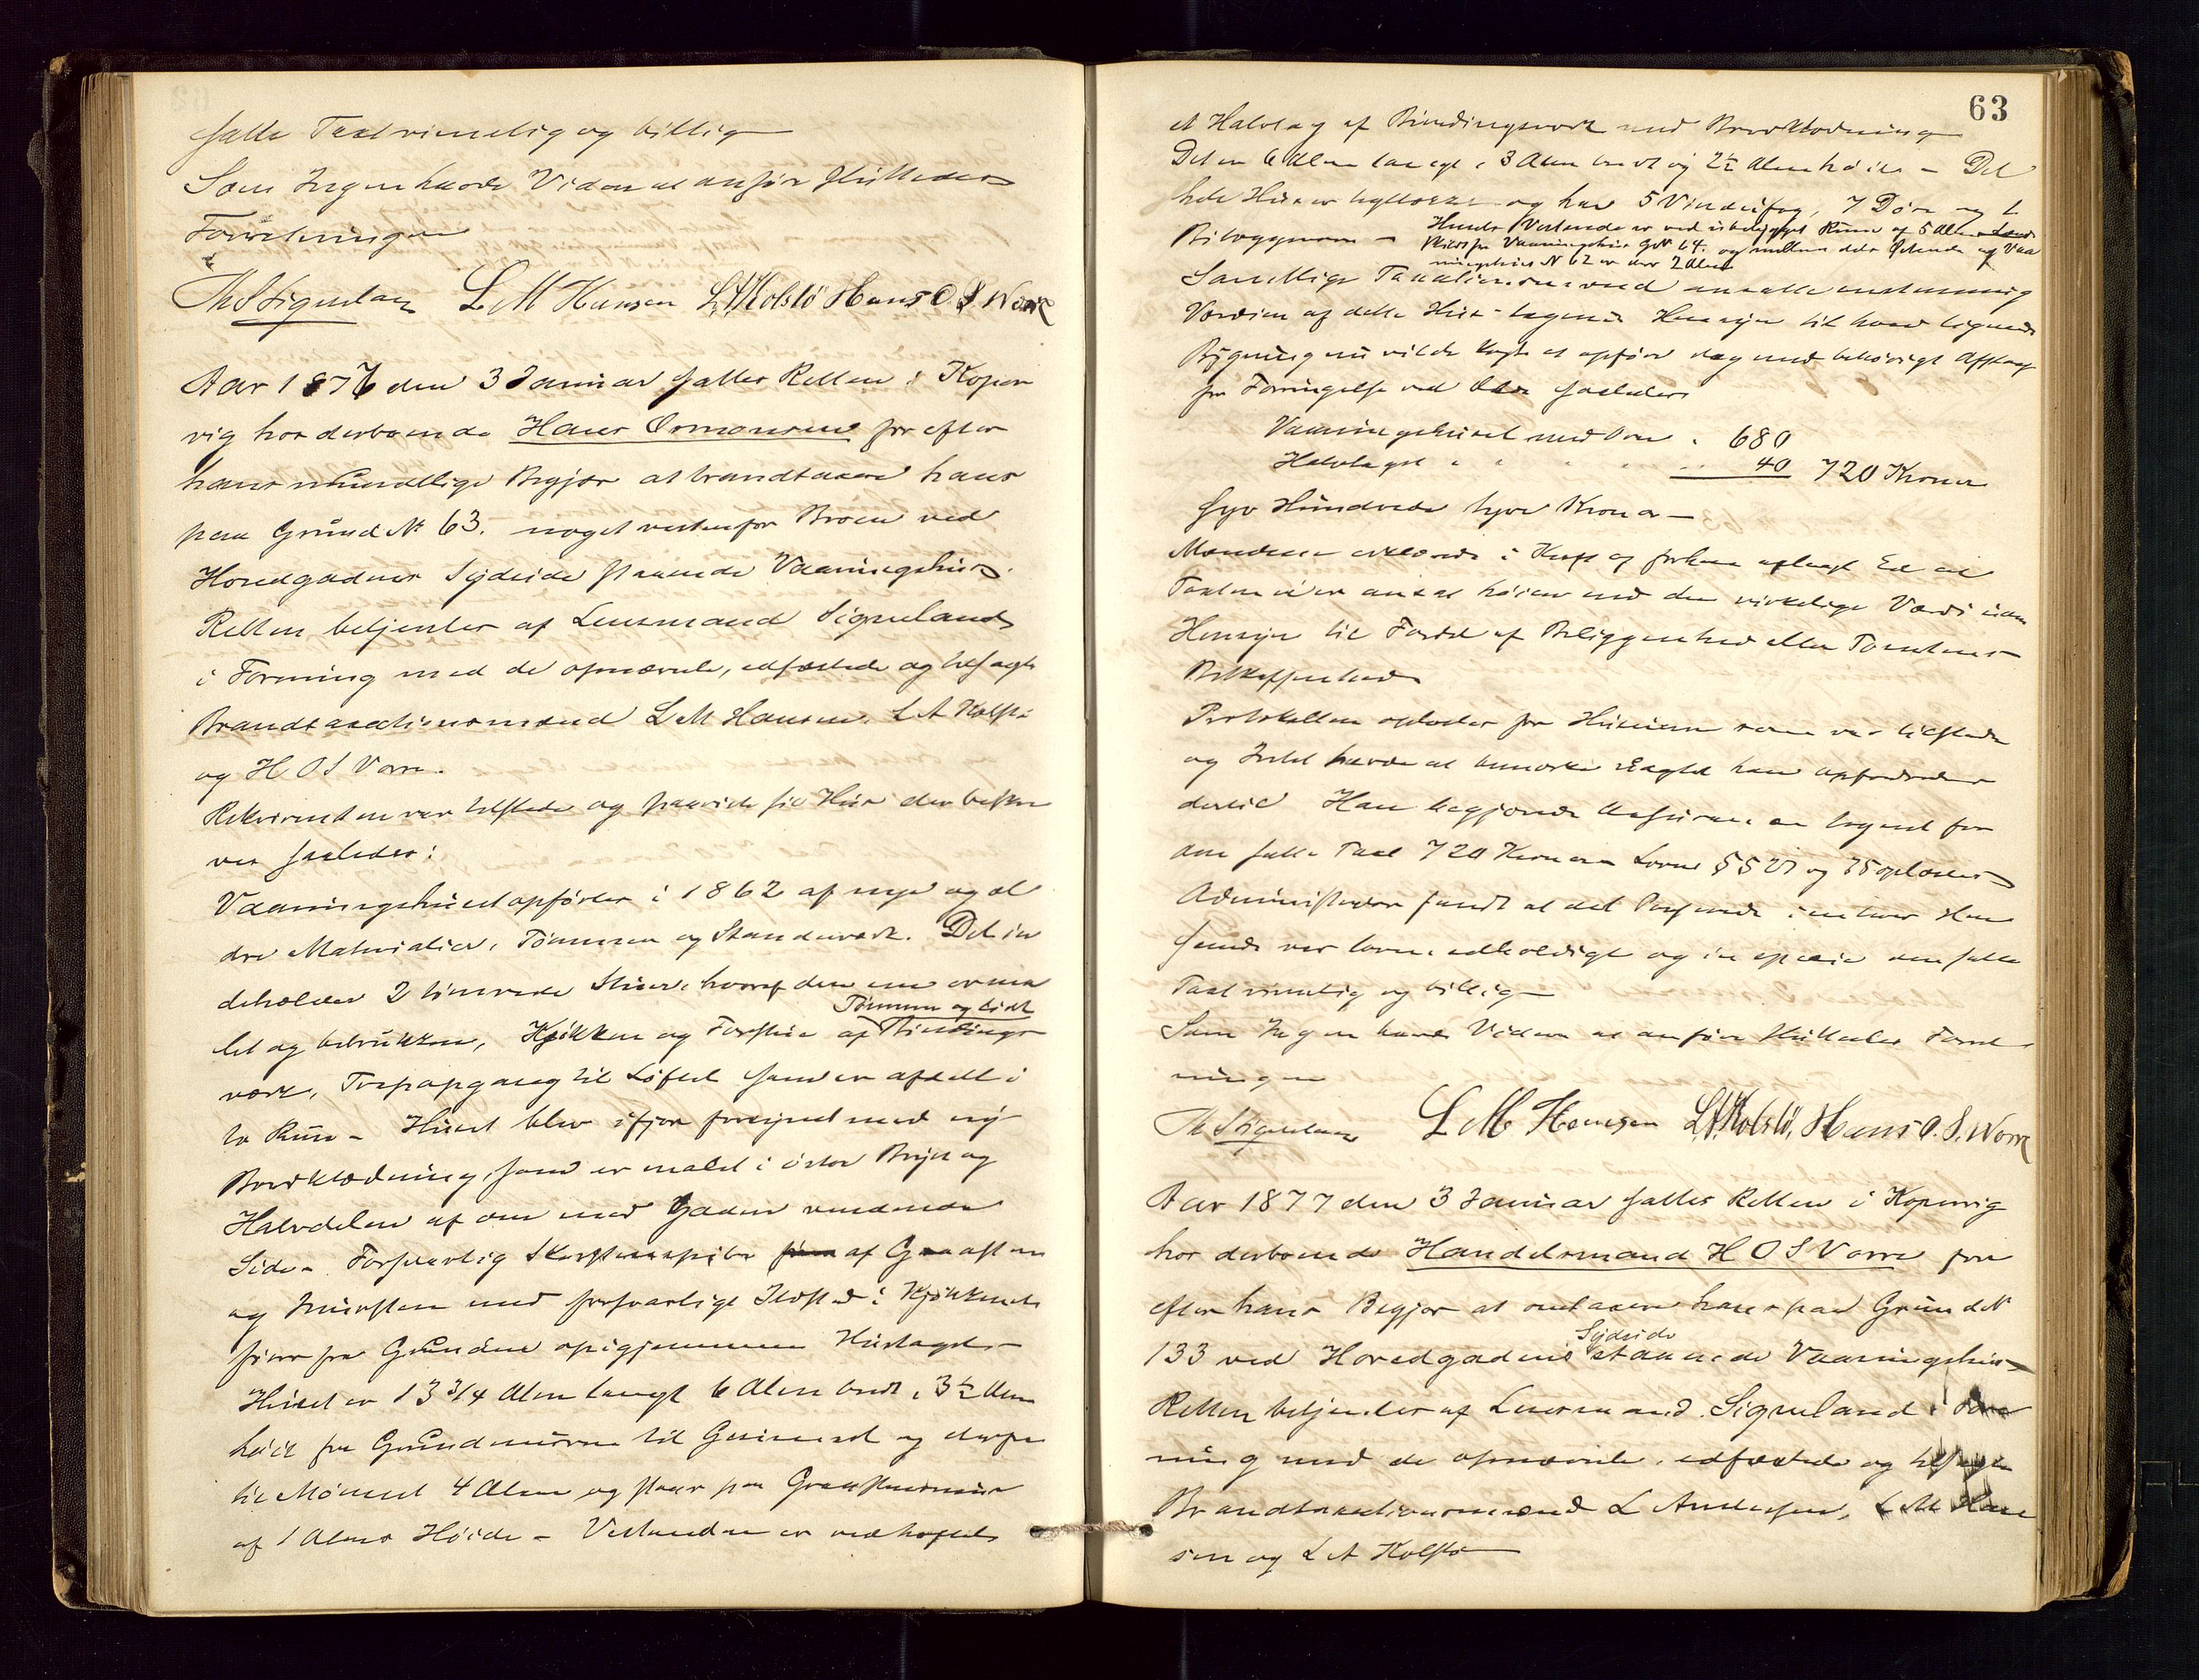 satte Taxt rimelig og billig
Som Ingen havde Videre at anføre sluttedes
Forretningen
Th Signeland L M Hansen L A Kolstø Hans O. S. Worre
Aar 1876 den 3 Januar sattes Retten i Koper
vig hos derboende Hans Osmonsen for efter
hans mundtlige Begjær at brandtaxere hans
paa Grund № 63. noget vestenfor Broen ved
Hovedgadens Sydside staaende Vaaningshus.
Retten betjentes af Lensmand Signeland
i Forening med de opnævnte, edfæstede og tilsagte
Brandtaxationsmænd L M Hansen. L A Kolstø
og H O S Vorre.
Rekvirenten var tilstede og paaviste sit Hus der beskre
ves saaledes:
Vaaningshuset opførtes i 1862 af nye og æl
dre Materialier, Tømmer og Standværk. Det in
deholder 2 tømrede Stuer, hvoraf den ene er ma
Tømmer og lidt
let og betrukken, Kjøkken og Forstue af Bindings
værk, Trapopgang til Loftet som er afdelt i
to Rum - Huset blev ifjor forsynet med ny
Bordklædning som er malet i østre Bryn og
Halvdelen af den mod Gaden vendende
Side - Forsvarlig Skorstenspibe af Graasten
og Mursten med forsvarligt Ildsted i Kjøkkenet
fører fra Grunden op igjennem Hustaget -
Huset er 13 3/4 Alen langt 6 Alen bredt, 3½ Alen
høit fra Grundmuren til Gesimset og derfra
til Mønnet 4 Alen og staar paa Graastensmur
af 1 Alens Høide - Vestenden er vedhæftet
63
et Halvtag af Bindingsværk med Bordklædning
Det er 6 Alen langt, 3 Alen bredt og 2½ Alen høit - Det
hele Hus er teglteckt og har 5 Vinduefag, 7 Døre og 1
Bilæggerovn - Husets Vestende er ved ubebygget Rum af 5 Alen
skilt fra Vaaningshus G№ 64. og mellem dets Østende og Vaa
ningshus № 62 er der 2 Alen
Samtlige Taxationsmænd ansatte enstemmig
Værdien af dette Hus - tagende Hensyn til hvad lignende
Bygning nu vilde koste at opføre dog med behørigt Afdrag
for Forringelse ved Ælde saaledes
Vaaningshuset med Ovn . 680
Halvtaget " " " " 40 720 Kroner
Syv Hundrede tyve Kroner -
Mændene erklærede i Kraft af forhen aflagt Ed at
Taxten ei er ansat høiere end den virkelige Værdi uden
Hensyn til Fordel af Beliggenhed eller Tomtens
Beskaffenhed
Protokollen oplæstes for Huseieren som var tilstede
og Intet havde at bemærke skjønt han opfordredes
dertil Han begjærede Assurance tegnet for
den satte Taxt 720 Kroner Lovens §§ 27 og 35 oplæstes
Administrator fandt at det Passerede i enhver Hen
seende var lovmedholdigt og in specie den satte
Taxt rimelig og billig -
Som Ingen havde Videre at anføre sluttedes Forret
ningen
Th Signeland L M Hansen L. A. Kolstø, Hans O. S. Worre
Aar 1877 den 3 Januar sattes Retten i Kopervig
hos derboende Handelsmand H O S Vorre for
efter hans Begjær at omtaxere hans paa Grund №
Sydside
133 ved Hovedgadens staaende Vaaningshus
Retten betjentes af Lensmand Signeland i Fore
ning med de opnævnte, edfæstede og tilsagte
Brandtaxationsmænd L Andersen, L M Han
sen og L A Kolstø